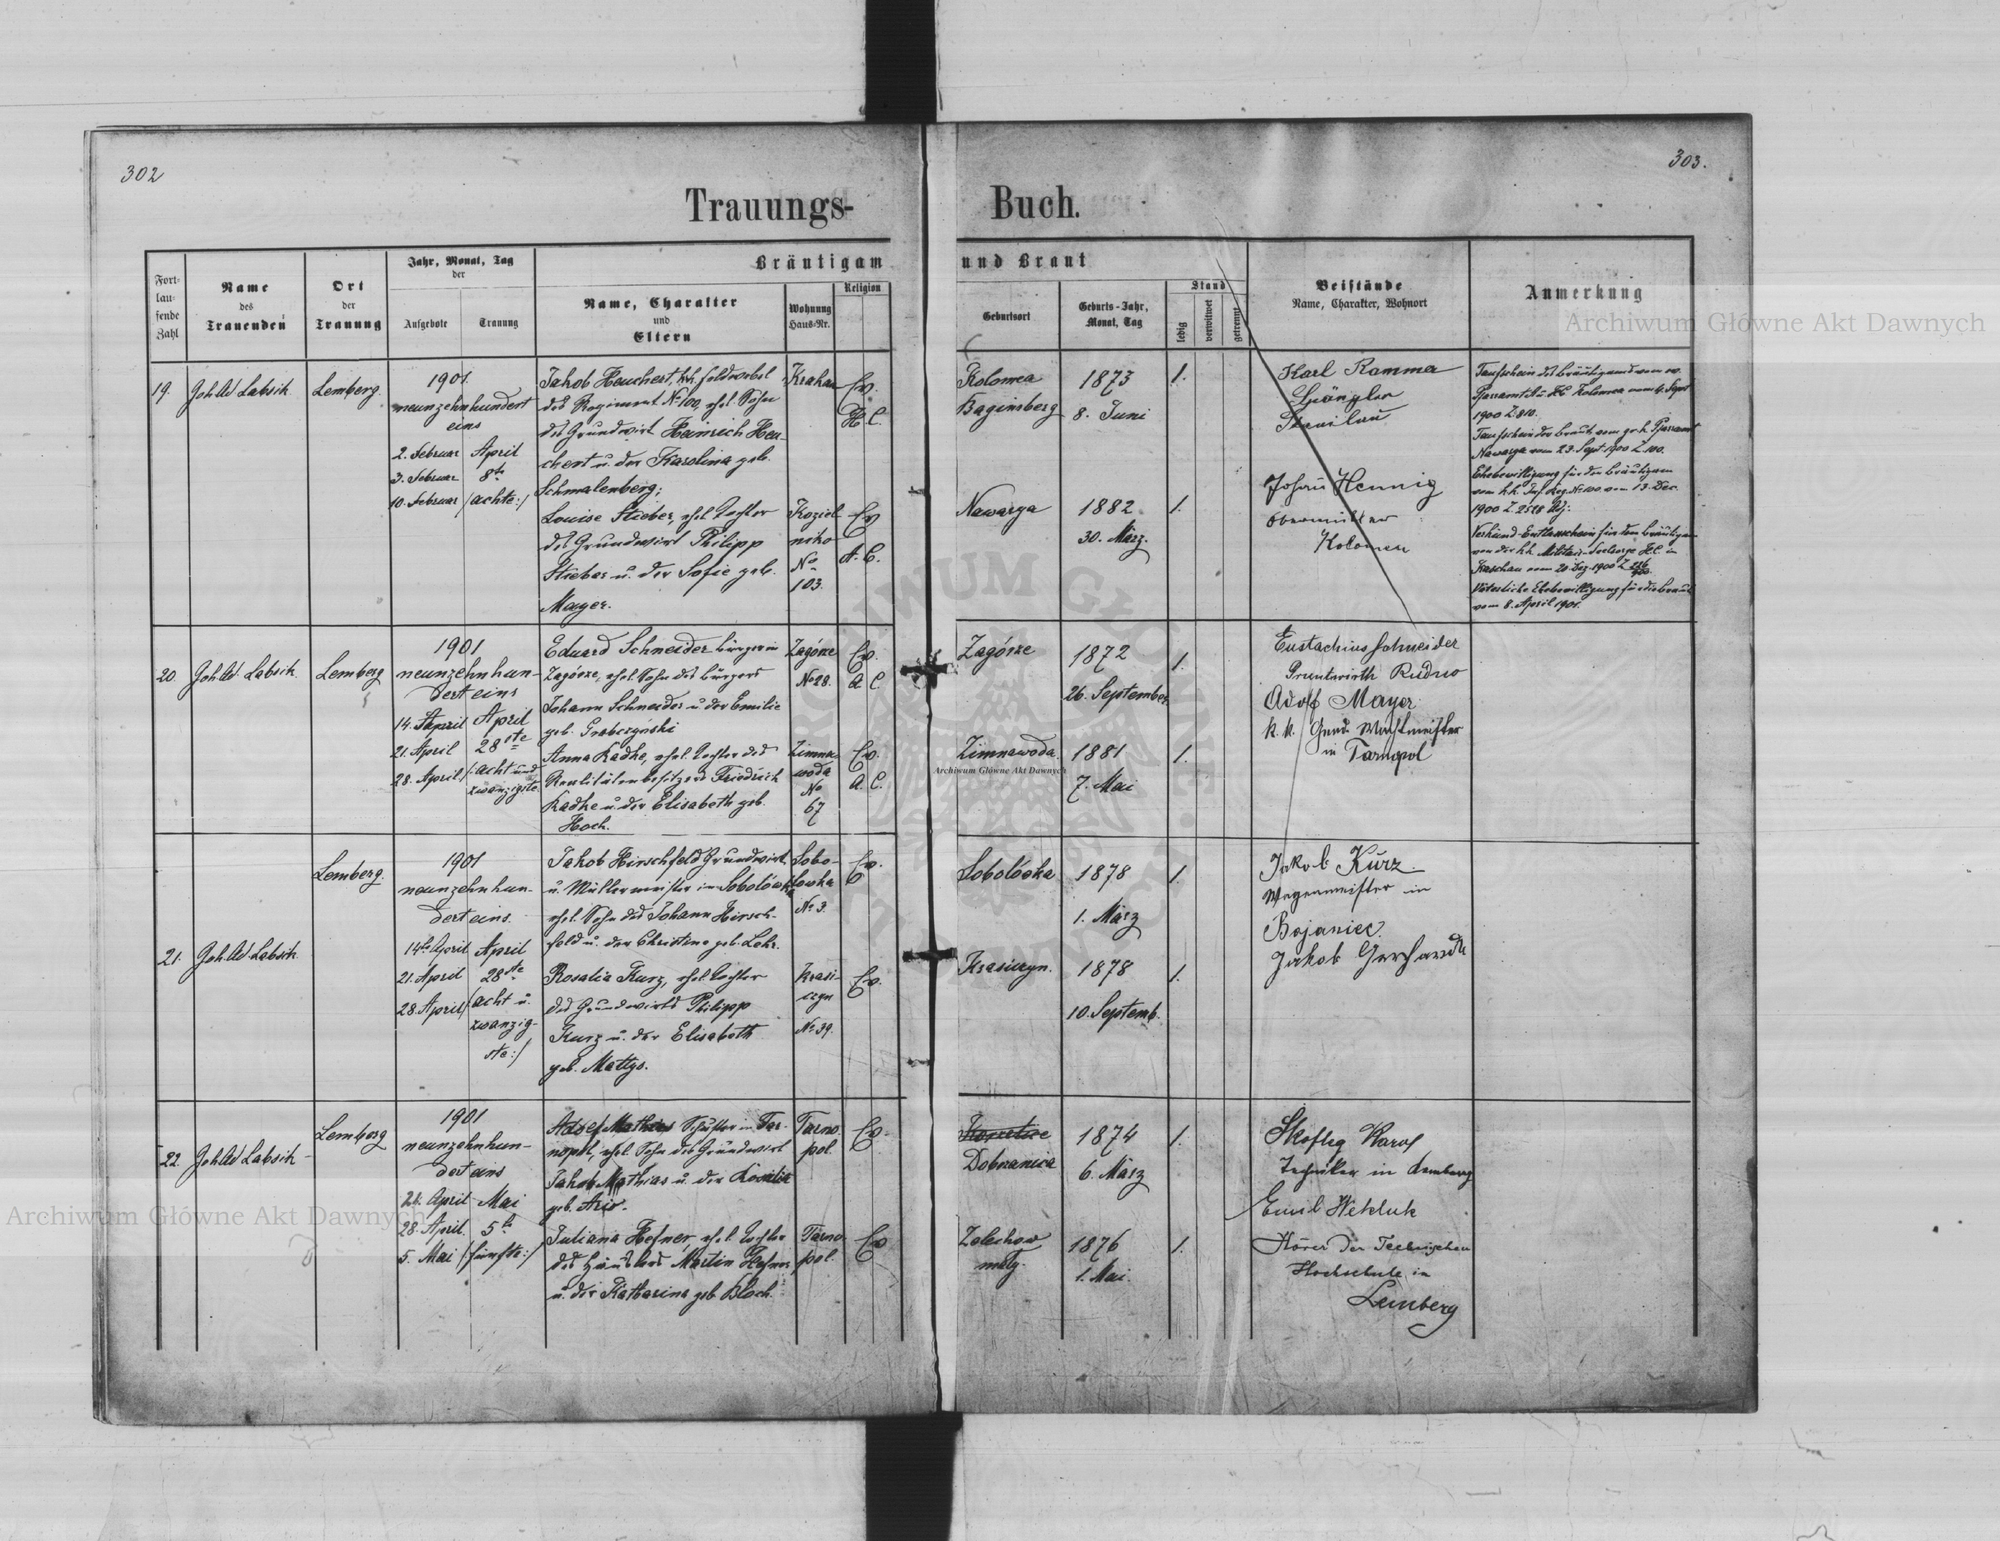 302
303.
Trauungs-
Buch.
Fort-
lau-
fende
Zahl
Name
des
Trauenden
Ort
der
Trauung
Jahr, Monat, Tag
der
Aufgebote
Trauung
Bräutigam
Name, Charakter
und
Eltern
Wohnung
Haus-Nr.
Religion
und Braut
Geburtsort
Geburts-Jahr,
Monat, Tag
Stand
ledig
verwitwet
getrennt
Beistände
Name, Charakter, Wohnort
Anmerkung
19.
Joh Ad Labsik
Lemberg.
1901
neunzehnhundert
eins
2. Februar
3. Februar
10. Februar
April
8te
/achte:/
Jakob Heuchert, k.k. Feldwebel
des Regiment No 100, ehel. Sohn
des Grundwirt Heinrich Heu-
chert u. der Karolina geb.
Schmalenberg;
Krakau
Ev.
H. C.
Louise Stieber, ehel. Tochter
des Grundwirt Philipp
Stieber u. der Sofie geb.
Mayer.
Koziel-
niki
No
103.
Ev
A. C.
Kolomea
Baginsberg
1873
8. Juni
1.
Nawarya
1882
30. März.
1.
Karl Ramma
Spängler
Johann Hennig
Obermüller
Kolomea
Taufschein des Bräutigams vom ev.
Pfarramt A u. HC Kolomea vom 4. Sept
1900 Z 810.
Taufschein der Braut vom gr. k. Pfarramt
Nawarya vom 23. Sept 1900 Z 100.
Ehebewilligung für den Bräutigam
vom k.k. Inf. Reg. No 100 vom 13. Dez.
1900 Z
Verkünd-Entlassschein für den Bräutigam
von der k.k. Militär-Seelsorge HC. in
Kaschau vom 20. Dez. 1900 Z
Väterliche Ehebewilligung für die Braut
vom 8. April 1901.
20.
Joh Ad. Labsik
Lemberg
1901
neunzehnhun-
dert eins
14. April
21. April
28. April
April
28ste
/:acht und
zwanzigste
Eduard Schneider Bürger in
Zagórze, ehel. Sohn des Bürgers
Johann Schneider u der Emilie
geb. Grobczyński
Zagórze
No 28.
Ev.
A. C.
Anna Kadke, ehel. Tochter des
Realitätenbesitzers Friedrich
Kadke u. der Elisabeth geb.
Hoch.
Zimna
woda
No
67
Ev.
A. C.
Zagórze
1872
26. September
1.
Zimnawoda
1881
7. Mai
1.
Eustachius Schneider
Grundwirth Rudno
Adolf Mayer
k.k. Gend. Wachtmeister
in Tarnopol
21.
Joh. Ad Labsik
Lemberg.
1901
neunzehnhun-
dert eins.
14te April
21. April
28. April
April
28ste
/acht u.
zwanzig-
ste:/
Jakob Hirschfeld Grundwirt
u. Müllermeister in Sobolówka
ehel. Sohn des Johann Hirsch-
feld u. der Christine geb. Lehr.
Sobo-
lowka
No 3.
Ev.
Rosalia Kurz, ehel. Tochter
des Grundwirts Philipp
Kurz u. der Elisabeth
geb. Mattys.
Krasi-
czyn
No 39.
Ev.
Sobolówka
1878
1. März
1.
Krasiczyn.
1878
10. Septemb.
1.
Jakob Kurz
Wegenmeister in
Bojaniec.
Jakob Gerhardt
22.
Joh Ad Labsik
Lemberg
1901
neunzehnhun-
dert eins
21. April
28. April.
5. Mai
Mai
5te
/:fünfte:/
Adolf Mathias Schuster in Tar-
nopol, ehel. Sohn des Grundwirt
Jakob Mathias u. der Rosalia
geb.
Tarno
pol.
Ev.
Juliana Hefner, ehel. Tochter
des Häuslers Martin Hefner
u. der Katharina geb. Bloch.
Tarno
pol.
Ev
Dobzanica
1874
6. März
1.
Zolechow
1876
1. Mai.
1.
Skofleg Karol
Techniker in Lemberg
Emil Wekluk
Hörer der Technischen
Hochschule in
Lemberg
Archiwum Główne Akt Dawnych
Archiwum Główne Akt Dawnych
Archiwum Główne Akt Dawnych